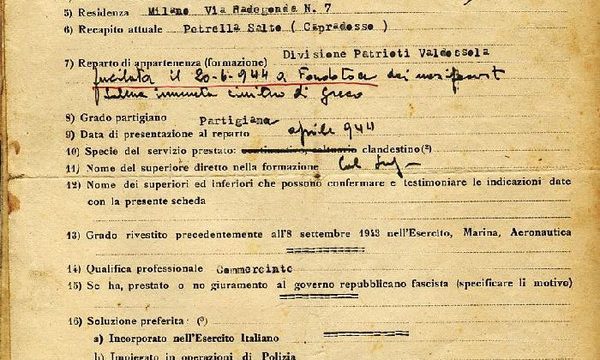 5) Residenza Milano Via Radegonda N. 7
6) Recapito attuale Petrella Salto ( Capradosso )
7) Reparto di appartenenza (formazione) Divisione Patrioti Valdossola
fucilata il 20-6-944 a Fondotoce dai nazifascisti
8) Grado partigiano Partigiana
9) Data di presentazione al reparto aprile 944
10) Specie del servizio prestato: clandestino(²)
11) Nome del superiore diretto nella formazione
12) Nome dei superiori ed inferiori che possono confermare e testimoniare le indicazioni date
con la presente scheda
13) Grado rivestito precedentemente all'8 settembre 1943 nell'Esercito, Marina, Aeronautica
14) Qualifica professionale Commerciante
15) Se ha, prestato o no giuramento al governo repubblicano fascista (specificare li motivo)
16) Soluzione preferita (³)
a) Incorporato nell'Esercito Italiano
b) Impiegato in operazioni di Polizia